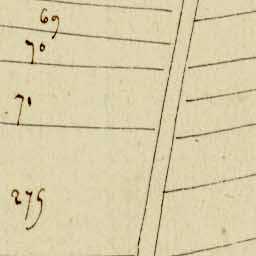 69
70
71
275